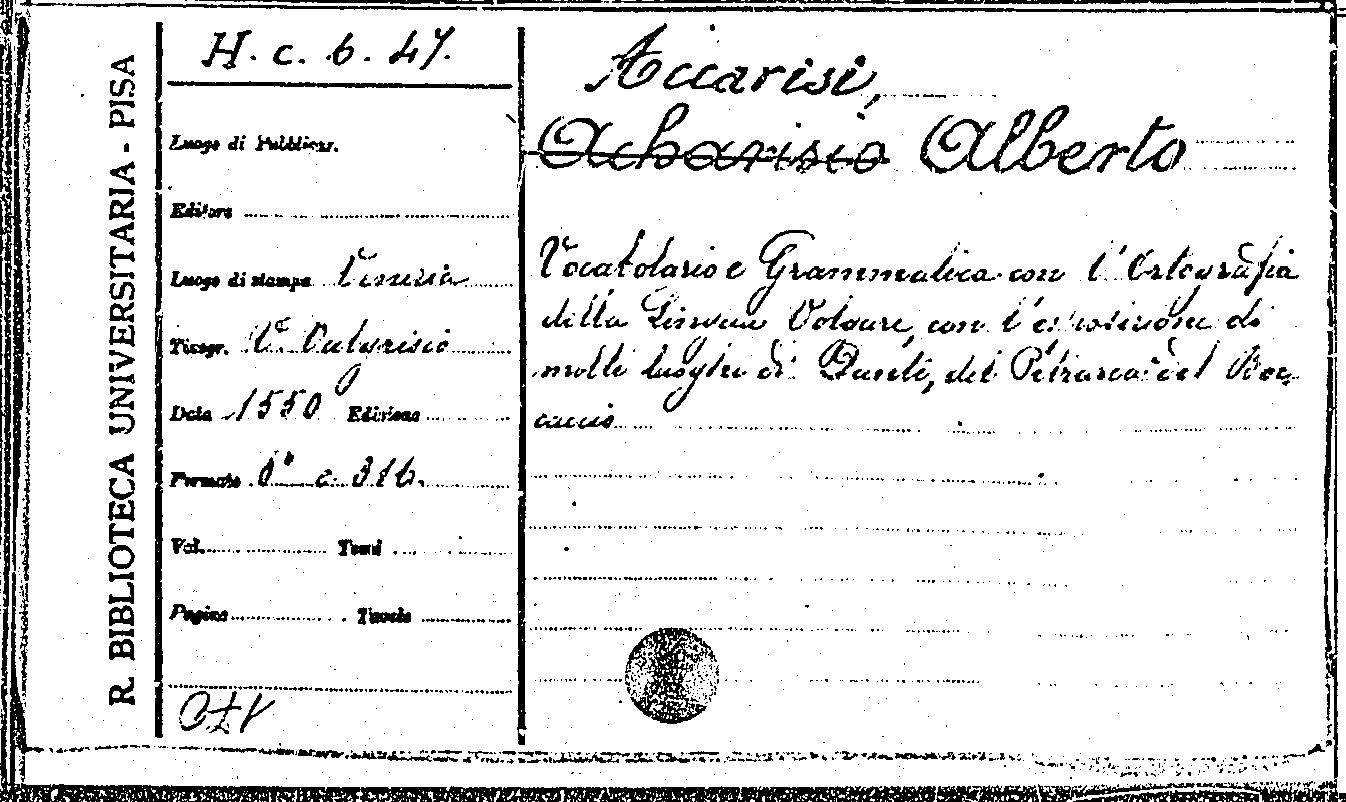 R. BIBLIOTECA UNIVERSITARIA - PISA
H. c. 6. 47.
Luogo di Pubblicaz.
Editore
Luogo di stampa Venezia
Tipogr. Vc Valgrisio
Data 1550 Edizione
Formato 8° c. 316.
Vol. Tomi
Pagine Tavole
Accarisi,
Acharisio Alberto
Vocabolario e Grammatica con l'Ortografia
della Lingua Volgare, con l'esposizione di
molti luoghi di Dante, del Petrarca e del Boc-
caccio